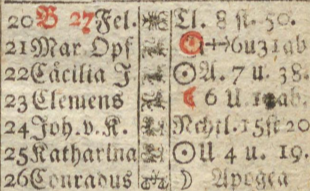 20 G 27 Fel. Tl. 8 st. 50.
21 Mar. Opf 6 u 31 ab
22 Cäcilia J ☉ A. 7 u. 38.
23 Clemens ☾ 6 U ab.
24 Joh. v. K. Nchtl. 15 st 20
25 Katharina ☉ U 4 u. 19.
26 Conradus ☽ Apogea